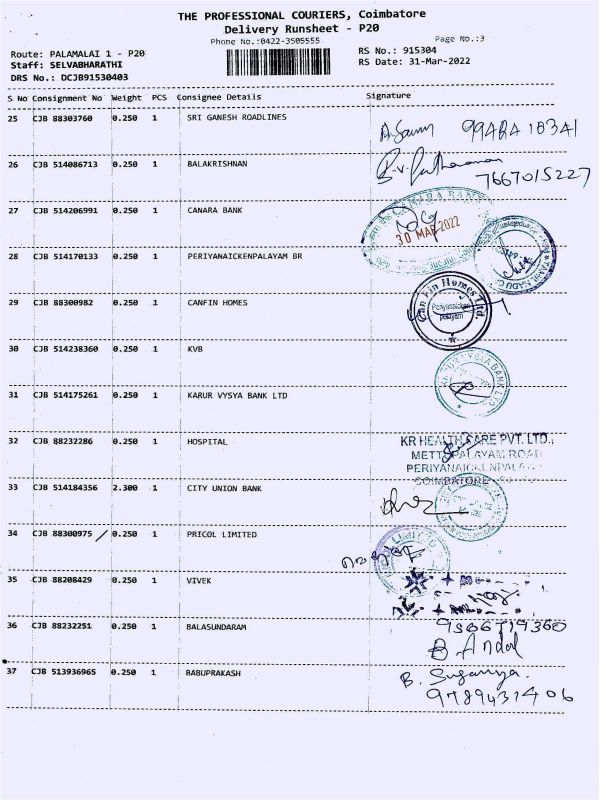 THE PROFESSIONAL COURIERS, Coimbatore
Delivery Runsheet - P20
Phone No.:0422-3505555
Page No.:3
Route: PALAMALAI 1 - P20
RS No.: 915304
Staff: SELVABHARATHI
RS Date: 31-Mar-2022
DRS No.: DCJB91530403
S No Consignment No Weight PCS Consignee Details Signature
25 CJB 88303760 0.250 1 SRI GANESH ROADLINES
26 CJB 514086713 0.250 1 BALAKRISHNAN
7667015227
27 CJB 514206991 0.250 1 CANARA BANK
CANARA BANK
30 MAR 2022
28 CJB 514170133 0.250 1 PERIYANAICKENPALAYAM BR
29 CJB 88300982 0.250 1 CANFIN HOMES
Can Fin Homes Ltd.
Periyanaicken
palayam
30 CJB 514238360 0.250 1 KVB
31 CJB 514175261 0.250 1 KARUR VYSYA BANK LTD
32 CJB 88232286 0.250 1 HOSPITAL
KR HEALTH CARE PVT. LTD.,
METTUPALAYAM ROAD
COIMBATORE
33 CJB 514184356 2.300 1 CITY UNION BANK
34 CJB 88300975 0.250 1 PRICOL LIMITED
LIMITED
35 CJB 88208429 0.250 1 VIVEK
36 CJB 88232251 0.250 1 BALASUNDARAM
B. Andal
37 CJB 513936965 0.250 1 BABUPRAKASH
B. Suganya.
9789431406